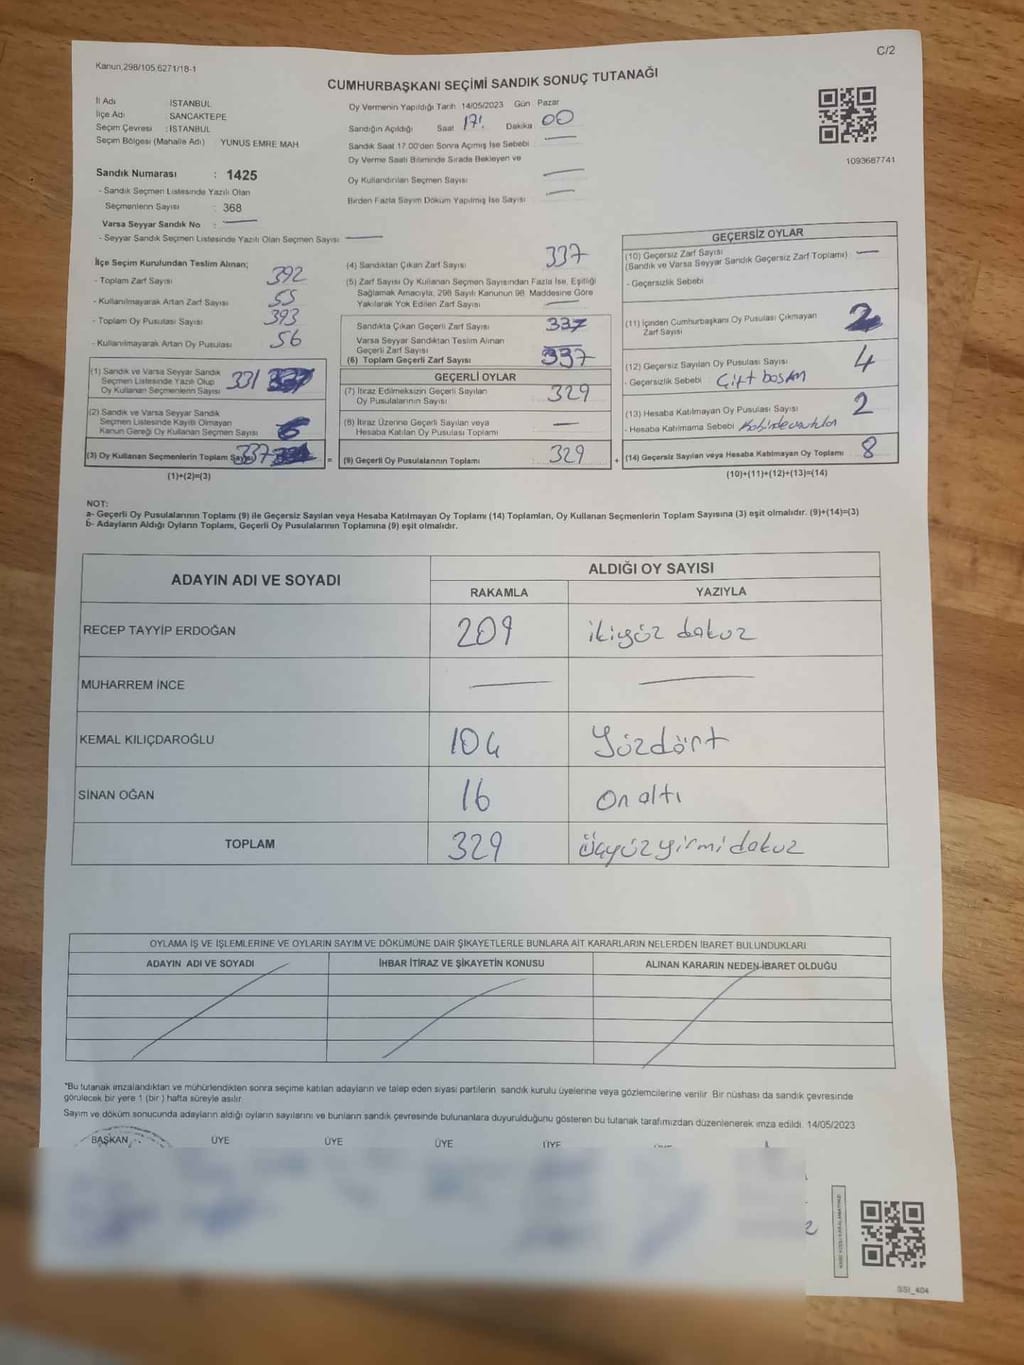 C/2
Kanun,298/105,6271/18-1
CUMHURBAŞKANI SEÇİMİ SANDIK SONUÇ TUTANAĞI
İl Adı İSTANBUL
İlçe Adı SANCAKTEPE
Seçim Çevresi : İSTANBUL
Seçim Bölgesi (Mahalle Adı) YUNUS EMRE MAH
Sandık Numarası : 1425
- Sandık Seçmen Listesinde Yazılı Olan
Seçmenlerin Sayısı : 368
Varsa Seyyar Sandık No :
- Seyyar Sandık Seçmen Listesinde Yazılı Olan Seçmen Sayısı :
Oy Vermenin Yapıldığı Tarih 14/05/2023 Gün Pazar
Sandığın Açıldığı Saat 17: Dakika 00
Sandık Saat 17.00'den Sonra Açımış İse Sebebi :
Oy Verme Saati Bitiminde Sırada Bekleyen ve
Oy Kullandırılan Seçmen Sayısı :
Birden Fazla Sayım Döküm Yapılmış İse Sayısı :
1093687741
İlçe Seçim Kurulundan Teslim Alınan;
- Toplam Zarf Sayısı 392
- Kullanılmayarak Artan Zarf Sayısı 55
- Toplam Oy Pusulası Sayısı 393
- Kullanılmayarak Artan Oy Pusulası 56
(1) Sandık ve Varsa Seyyar Sandık
Seçmen Listesinde Yazılı Olup
Oy Kullanan Seçmenlerin Sayısı 331
(2) Sandık ve Varsa Seyyar Sandık
Seçmen Listesinde Kayıtlı Olmayan
Kanun Gereği Oy Kullanan Seçmen Sayısı 6
(3) Oy Kullanan Seçmenlerin Toplam Sayısı 337 =
(1)+(2)=(3)
(4) Sandıktan Çıkan Zarf Sayısı : 337
(5) Zarf Sayısı Oy Kullanan Seçmen Sayısından Fazla İse, Eşitliği
Sağlamak Amacıyla, 298 Sayılı Kanunun 98. Maddesine Göre
Yakılarak Yok Edilen Zarf Sayısı :
Sandıkta Çıkan Geçerli Zarf Sayısı : 337
Varsa Seyyar Sandıktan Teslim Alınan
Geçerli Zarf Sayısı :
(6) Toplam Geçerli Zarf Sayısı : 337
GEÇERLİ OYLAR
(7) İtiraz Edilmeksizin Geçerli Sayılan
Oy Pusulalarının Sayısı : 329
(8) İtiraz Üzerine Geçerli Sayılan veya
Hesaba Katılan Oy Pusulası Toplamı :
(9) Geçerli Oy Pusulalarının Toplamı : 329 +
GEÇERSİZ OYLAR
(10) Geçersiz Zarf Sayısı
(Sandık ve Varsa Seyyar Sandık Geçersiz Zarf Toplamı)
- Geçersizlik Sebebi
(11) İçinden Cumhurbaşkanı Oy Pusulası Çıkmayan
Zarf Sayısı 2
(12) Geçersiz Sayılan Oy Pusulası Sayısı : 4
- Geçersizlik Sebebi Çift basım
(13) Hesaba Katılmayan Oy Pusulası Sayısı : 2
- Hesaba Katılmama Sebebi
(14) Geçersiz Sayılan veya Hesaba Katılmayan Oy Toplamı : 8
(10)+(11)+(12)+(13)=(14)
NOT:
a- Geçerli Oy Pusulalarının Toplamı (9) ile Geçersiz Sayılan veya Hesaba Katılmayan Oy Toplamı (14) Toplamları, Oy Kullanan Seçmenlerin Toplam Sayısına (3) eşit olmalıdır. (9)+(14)=(3)
b- Adayların Aldığı Oyların Toplamı, Geçerli Oy Pusulalarının Toplamına (9) eşit olmalıdır.
ADAYIN ADI VE SOYADI ALDIĞI OY SAYISI
RAKAMLA YAZIYLA
RECEP TAYYİP ERDOĞAN 209 ikiyüz dokuz
MUHARREM İNCE
KEMAL KILIÇDAROĞLU 104 Yüzdört
SİNAN OĞAN 16 On altı
TOPLAM 329 üçyüzyirmidokuz
OYLAMA İŞ VE İŞLEMLERİNE VE OYLARIN SAYIM VE DÖKÜMÜNE DAİR ŞİKAYETLERLE BUNLARA AİT KARARLARIN NELERDEN İBARET BULUNDUKLARI
ADAYIN ADI VE SOYADI İHBAR İTİRAZ VE ŞİKAYETİN KONUSU ALINAN KARARIN NEDEN İBARET OLDUĞU
*Bu tutanak imzalandıktan ve mühürlendikten sonra seçime katılan adayların ve talep eden siyasi partilerin sandık kurulu üyelerine veya gözlemcilerine verilir. Bir nüshası da sandık çevresinde
görülecek bir yere 1 (bir) hafta süreyle asılır.
Sayım ve döküm sonucunda adayların aldığı oyların sayılarını ve bunların sandık çevresinde bulunanlara duyurulduğunu gösteren bu tutanak tarafımızdan düzenlenerek imza edildi. 14/05/2023
BAŞKAN ÜYE ÜYE ÜYE ÜYE
SSI_404